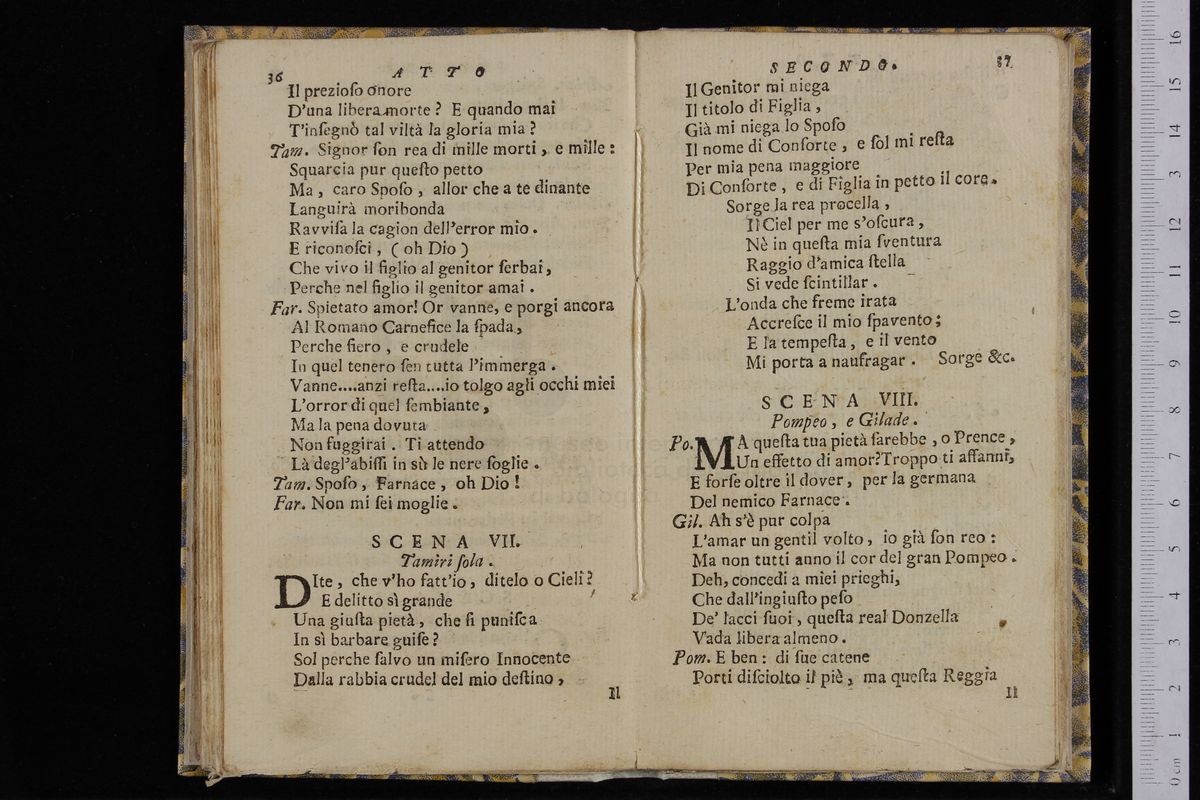 36
ATTO
Il prezioſo onore
D'una libera morte ? E quando mai
T'inſegnò tal viltà la gloria mia ?
Tam. Signor ſon rea di mille morti , e mille :
Squarcia pur queſto petto
Ma , caro Spoſo , allor che a te dinante
Languirà moribonda
Ravviſa la cagion dell'error mio .
E riconoſci , ( oh Dio )
Che vivo il figlio al genitor ſerbai ,
Perche nel figlio il genitor amai .
Far. Spietato amor! Or vanne, e porgi ancora
Al Romano Carnefice la ſpada ,
Perche fiero , e crudele
In quel tenero ſen tutta l'immerga .
Vanne....anzi reſta....io tolgo agli occhi miei
L'orror di quel ſembiante ,
Ma la pena dovuta
Non fuggirai . Ti attendo
Là degl'abiſſi in sù le nere ſoglie .
Tam. Spoſo , Farnace , oh Dio !
Far. Non mi ſei moglie .
SCENA VII.
Tamiri ſola .
DIte , che v'ho fatt'io , ditelo o Cieli ?
E delitto sì grande
Una giuſta pietà , che ſi puniſca
In sì barbare guiſe ?
Sol perche ſalvo un miſero Innocente
Dalla rabbia crudel del mio deſtino ,
Il
SECONDO.
37
Il Genitor mi niega
Il titolo di Figlia ,
Già mi niega lo Spoſo
Il nome di Conſorte , e ſol mi reſta
Per mia pena maggiore
Di Conſorte , e di Figlia in petto il core .
Sorge la rea procella ,
Il Ciel per me s'oſcura ,
Nè in queſta mia ſventura
Raggio d'amica ſtella
Si vede ſcintillar .
L'onda che freme irata
Accreſce il mio ſpavento ;
E la tempeſta , e il vento
Mi porta a naufragar . Sorge &c.
SCENA VIII.
Pompeo , e Gilade .
Po. MA queſta tua pietà ſarebbe , o Prence ,
Un effetto di amor? Troppo ti affanni,
E forſe oltre il dover , per la germana
Del nemico Farnace .
Gil. Ah s'è pur colpa
L'amar un gentil volto , io già ſon reo :
Ma non tutti anno il cor del gran Pompeo .
Deh, concedi a miei prieghi,
Che dall'ingiuſto peſo
De' lacci ſuoi , queſta real Donzella
Vada libera almeno .
Pom. E ben : di ſue catene
Porti diſciolto il piè , ma queſta Reggia
Il